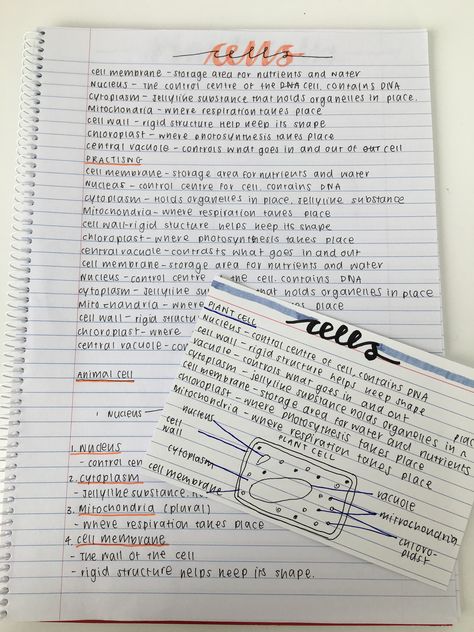 cells
cell membrane - storage area for nutrients and water
nucleus - the control centre of the DNA cell. contains DNA
cytoplasm - Jellylike substance that holds organelles in place.
mitochondria - where respiration takes place
cell wall - rigid structure help keep its shape
chloroplast - where photosynthesis takes place
central vacuole - controls what goes in and out of our cell
PRACTISING
cell membrane - storage area for nutrients and water
nucleas - control centre for cell. contains DNA
cytoplasm - holds organelles in place. Jellylike substance
Mitochondria - where respiration takes place
cell wall - rigid stucture helps keep its shape
chloroplast - where photosynthesis takes place
central vacuole - contrasts what goes in and out
cell membrane - storage area for nutrients and water
nucleus - control centre of the cell. contains DNA
cytoplasm - jellylike su that holds organelles in place
Mitochondria - where
cell wall - rigid structu
chloroplast - where
central vacuole - con
Animal cell
1 Nucleus
1. Nucleus
- control cen
2. cytoplasm
- Jellylike substance. h
3. Mitochondria (plural)
- where respiration takes place
4. cell membrane
- The wall of the cell
- rigid structure helps keep its shape.
PLANT CELL
cells
nucleus - control centre of cell. contains DNA
cell wall - rigid structure helps keep shape
vacuole - controls what goes in and out
cytoplasm - jellylike substance holds organelles in place
cell membrane - storage area for water and nutrients
chloroplast - where photosynthesis takes place
Mitochondria - where respiration takes place
PLANT CELL
nucleus
cell
wall
cytoplasm
cell membrane
vacuole
mitrochondria
chloro-
plast